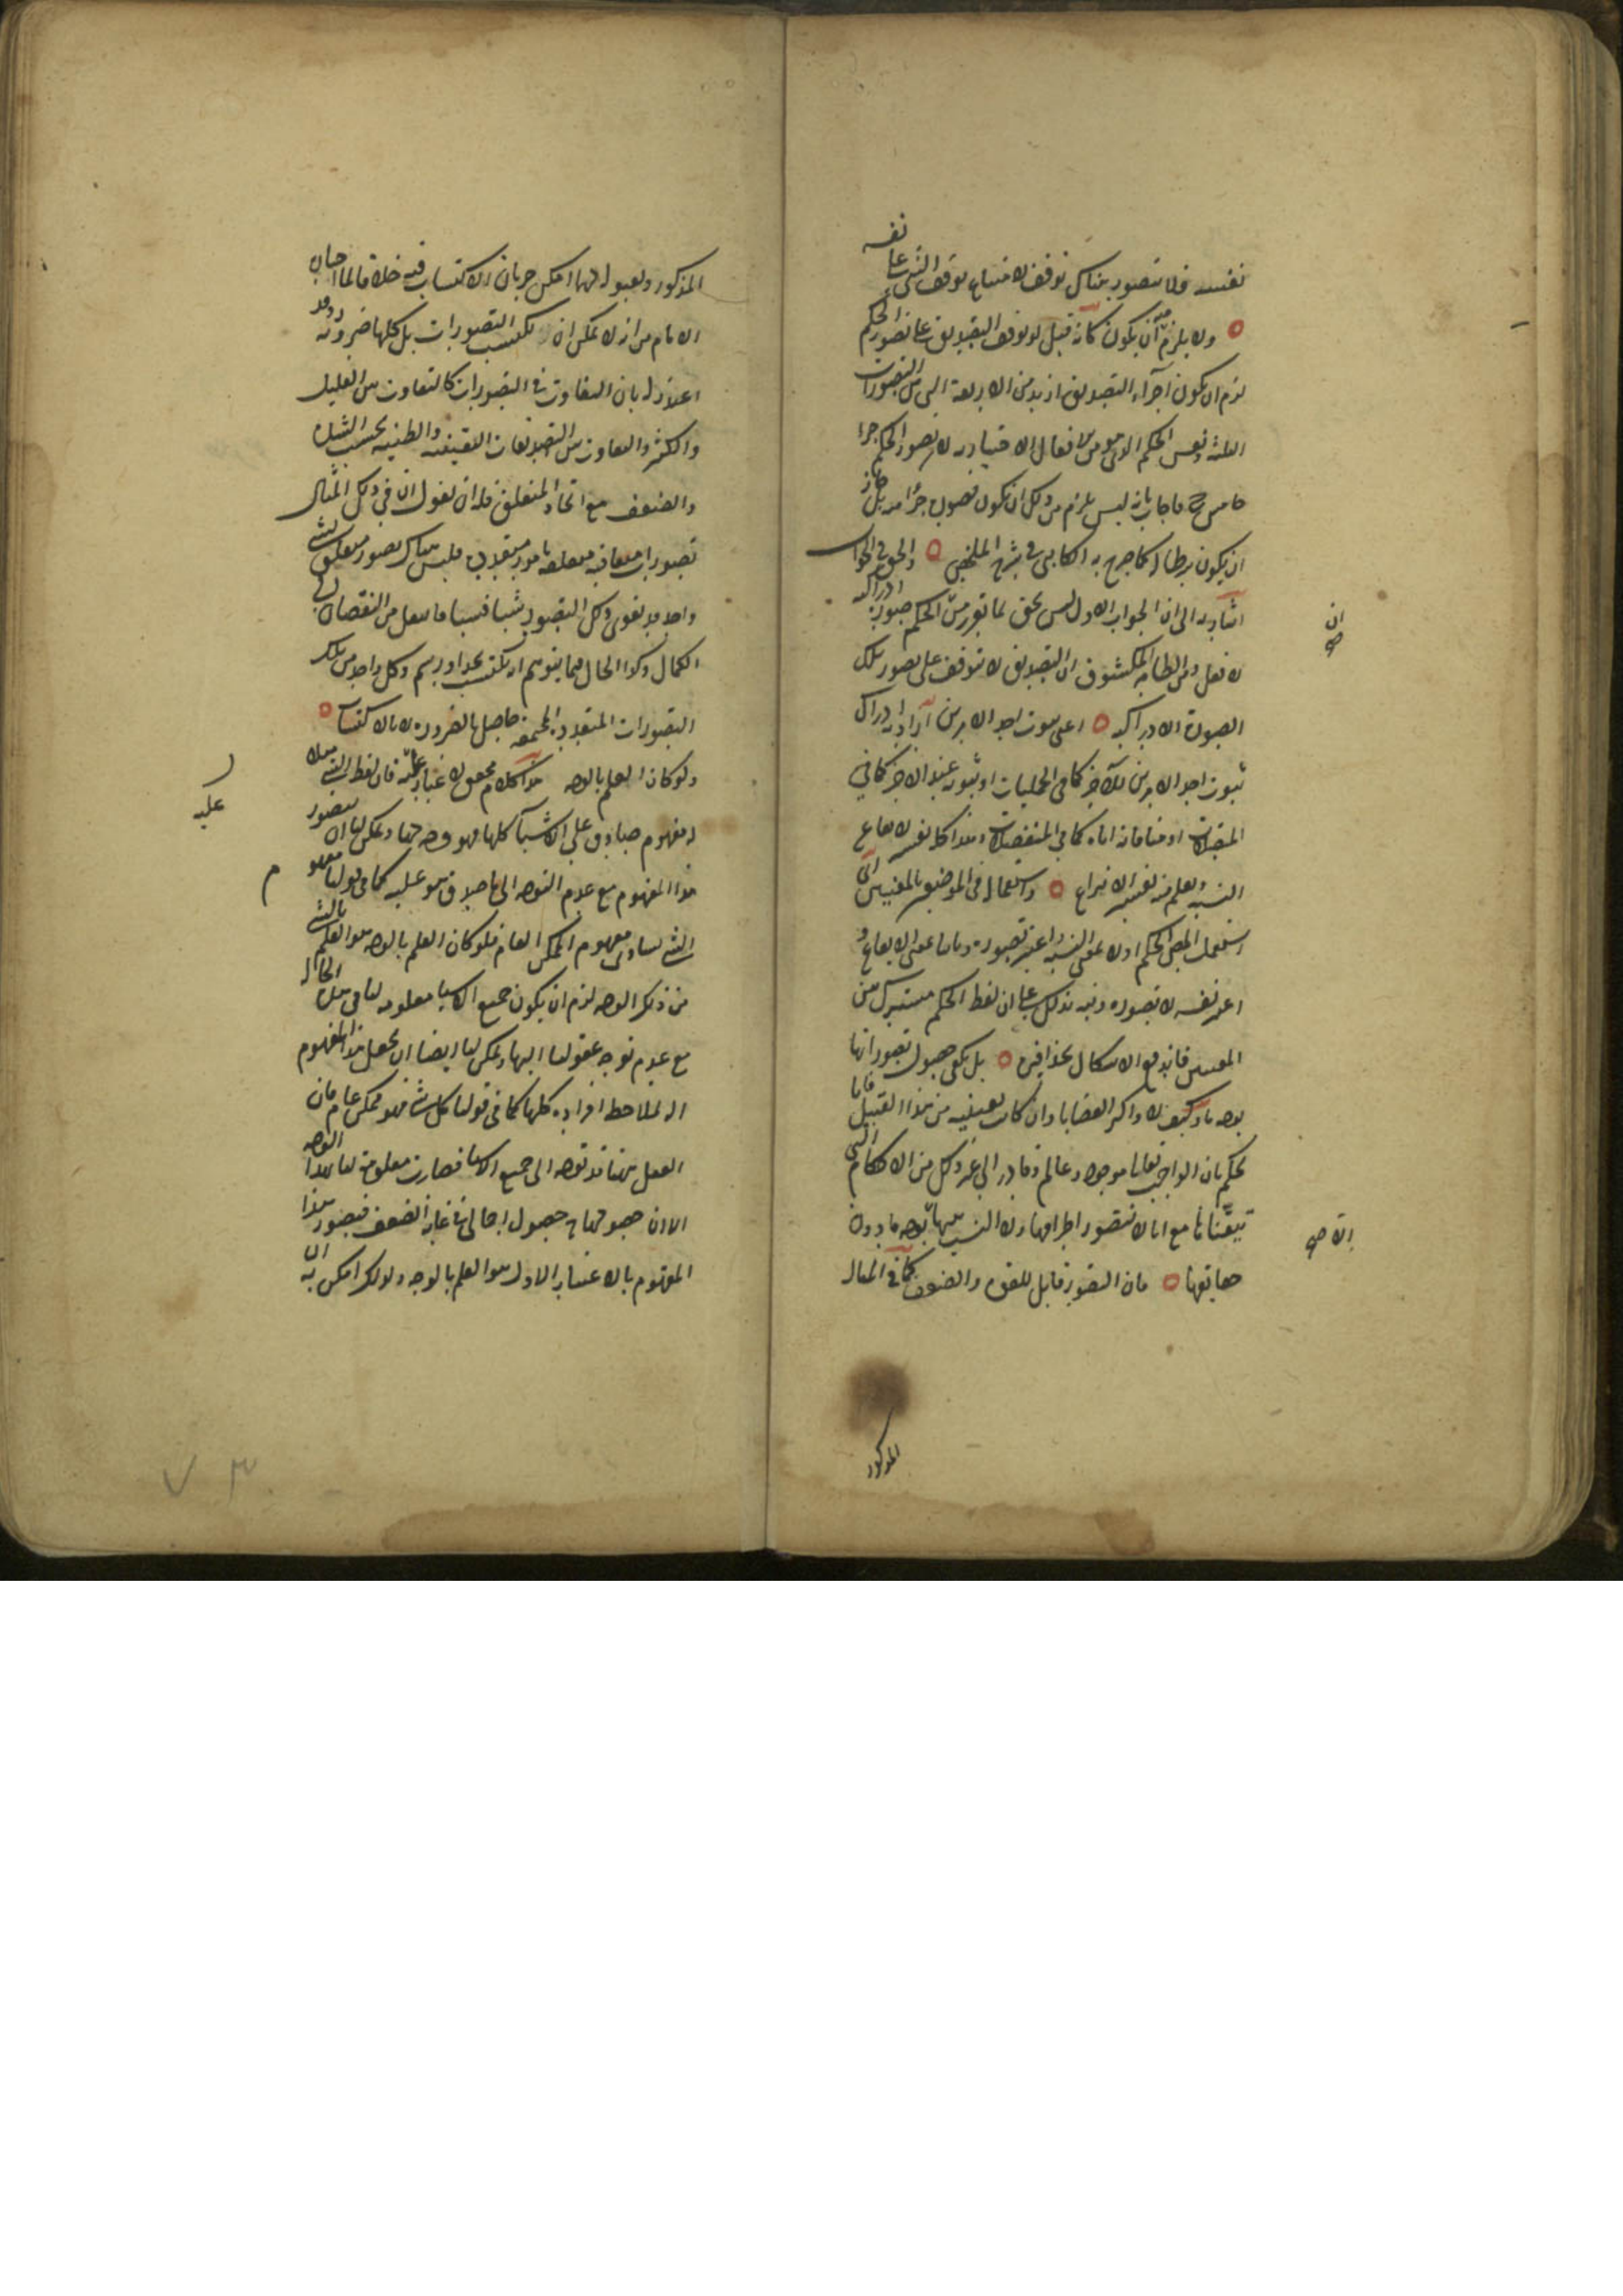 نفسه فلا يتصور هناك توقف لامتناع توقف الشئ على نفسه
ولا يلزم منه ان يكون كانه قيل لو توقف التصديق على تصور الحكم
لزم ان يكون اجزاء التصديق ازيد من الاربعة التى هى التصورات
الثلثة ونفس الحكم الذى هو من الافعال الاختيارية لان تصور الحكم جزء
خامس ح فاجاب بانه ليس يلزم من ذلك ان يكون حصوله جزءا منه بل جاز
ان يكون شرطا له كما صرح به الكاتبى فى شرح الملخص والحق فى الجواب
اشارة الى ان الجواب الاول ليس بحق لما تقرر من ان الحكم صورة ادراكية
لا فعل ومن الظاهر المكشوف ان التصديق لا يتوقف على تصور تلك
الصورة الادراكية اعنى ثبوت احد الامرين اراد به ادراك
ثبوت احد الامرين للآخر كما فى الحمليات او ثبوته عند الاخر كما فى
المتصلات او منافاته اياه كما فى المنفصلات وهذا كله تفسير للايقاع
النسبة ويعلم منه تفسير الانتزاع واستعمال فى الموضعين بالمعنيين اى
استعمل المص الحكم اولا بمعنى النسبة واعتبر تصوره وثانيا بمعنى الايقاع و
اعتبر نفسه لا تصوره ونبه بذلك على ان لفظ الحكم مشترك بين
المعنيين فاندفع الاشكال بحذافيره بل يكفى حصول تصوراتها
بوجه ما وكيف لا واكثر القضايا وان كانت يقينية من هذا القبيل فانا
نحكم بان الواجب تعالى موجود وعالم وقادر الى غير ذلك من الاحكام التى
تيقناها مع انا لا نتصور اطرافها ولا النسب بينها الا بوجه ما دون
حقايقها فان التصور قابل للقوة والضعف كما فى المثال
ان صح
الا صح
المذكور
المذكور ولقبوله لهما امكن جريان الاكتساب فيه خلافا لما اجاب
الامام من انه لا يمكن ان يكتسب التصورات بل كلها ضرورية وقد
اعتذر له بان التفاوت فى التصورات كالتفاوت بين القليل
والكثير والتفاوت بين التصديقات اليقينية والظنية بحسب الشدة
والضعف مع اتحاد المتعلق فله ان يقول ان فى ذلك المثال
تصورات متعاقبة متعلقة بامور متعددة فليس هناك تصور متعلق بشئ
واحد قد يقوى ذلك التصور شيئا فشيئا فانتقل من النقصان الى
الكمال وكذا الحال فيما يتوهم انه يكتسب بحد او رسم وكل واحد من تلك
التصورات المتعددة المجتمعة حاصل بالضرورة لا بالاكتساب
ولو كان العلم بالوجه هذا كلام محقق لا غبار عليه فان لفظ الشئ مثلا
له مفهوم صادق على الاشياء كلها فهو وجه لها ويمكن لنا ان نتصور
هذا المفهوم مع عدم التوجه الى ما صدق هو عليه كما فى قولنا مفهوم
الشئ يساوى مفهوم الممكن العام فلو كان العلم بالوجه هو العلم بالشئ
من ذلك الوجه لزم ان يكون جميع الاشياء معلومة لنا فى هذه الحالة
مع عدم توجه عقولنا اليها ويمكن لنا ايضا ان نجعل هذا المفهوم
آلة لملاحظة افراده كلها كما فى قولنا كل شئ فهو ممكن عام فان
العقل ههنا قد توجه الى جميع الاشياء فصارت معلومة لنا بهذا الوجه
الا ان حصولها ح حصول اجمالى فى غاية الضعف فتصور هذا
المفهوم بالاعتبار الاول هو العلم بالوجه ولذلك امكن ان
عليه
م